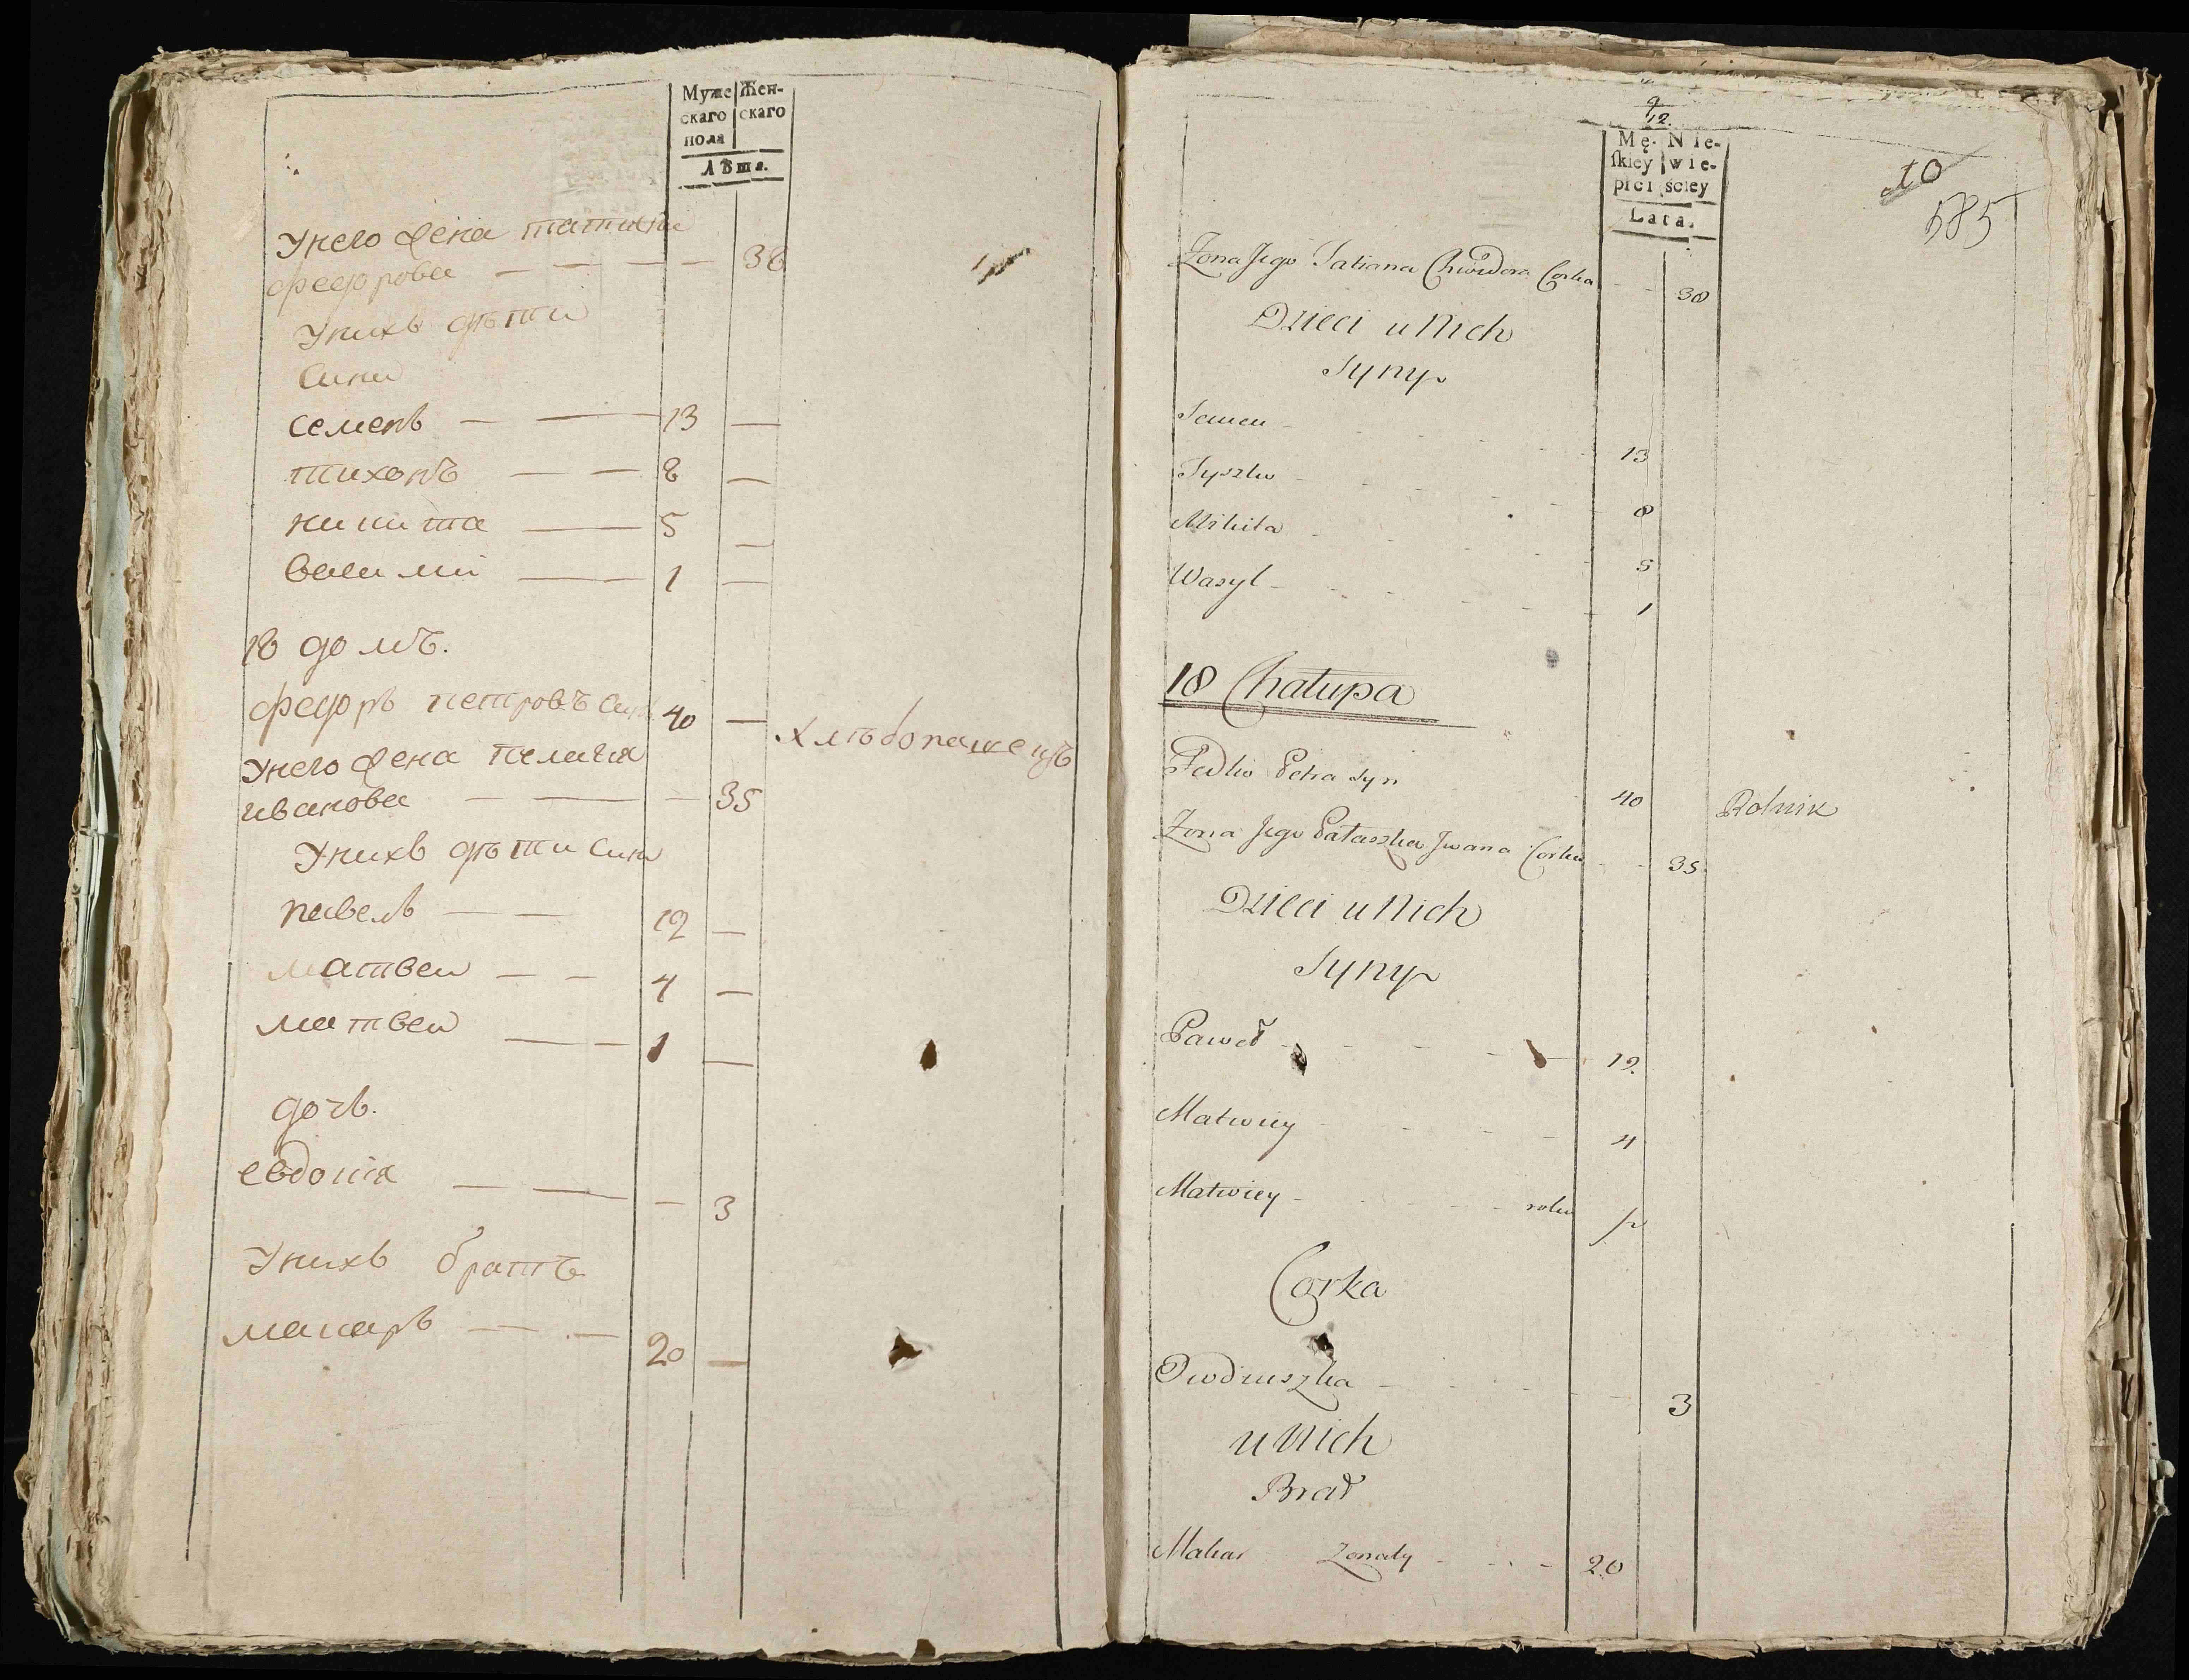 Муже Жен-
скаго скаго
пола
Лѣта.
Унего жена татияна
федорова — — — — 38
Унихъ дѣти
сини
семенъ — — 13 —
тихонъ — — 8 —
никита — 5 —
васили — 1 —
18 домъ.
федоръ петровъ синъ 40 — хлѣбопашецъ
Унего жена пелагия
иванова — — — 35
Унихъ дѣти сини
павелъ — — 12 —
матвеи — — 4 —
матвеи — — 1 —
дочь.
евдокия — — — 3
Унихъ братъ
макаръ — — 20 —
9/12.
Mę- Nie-
skiey wie-
płci ściey
Lata.
10
585
Zona Jego Tatiana Chwedora Corka - - 38
Dzieci u Nich
Syny
Semen - 13
Tyszko - 8
Mikita - 5
Wasyl - 1
18 Chałupa
Fedko Petra syn 40 Rolnik
Zona Jego Pałaszka Jwana Corka - - 35
Dzieci u Nich
Syny
Paweł - 12.
Matwiey - 4
Matwiey - roku 1
Corka
Owdiuszka - 3
u Nich
Brat
Makar Zonaty - 20